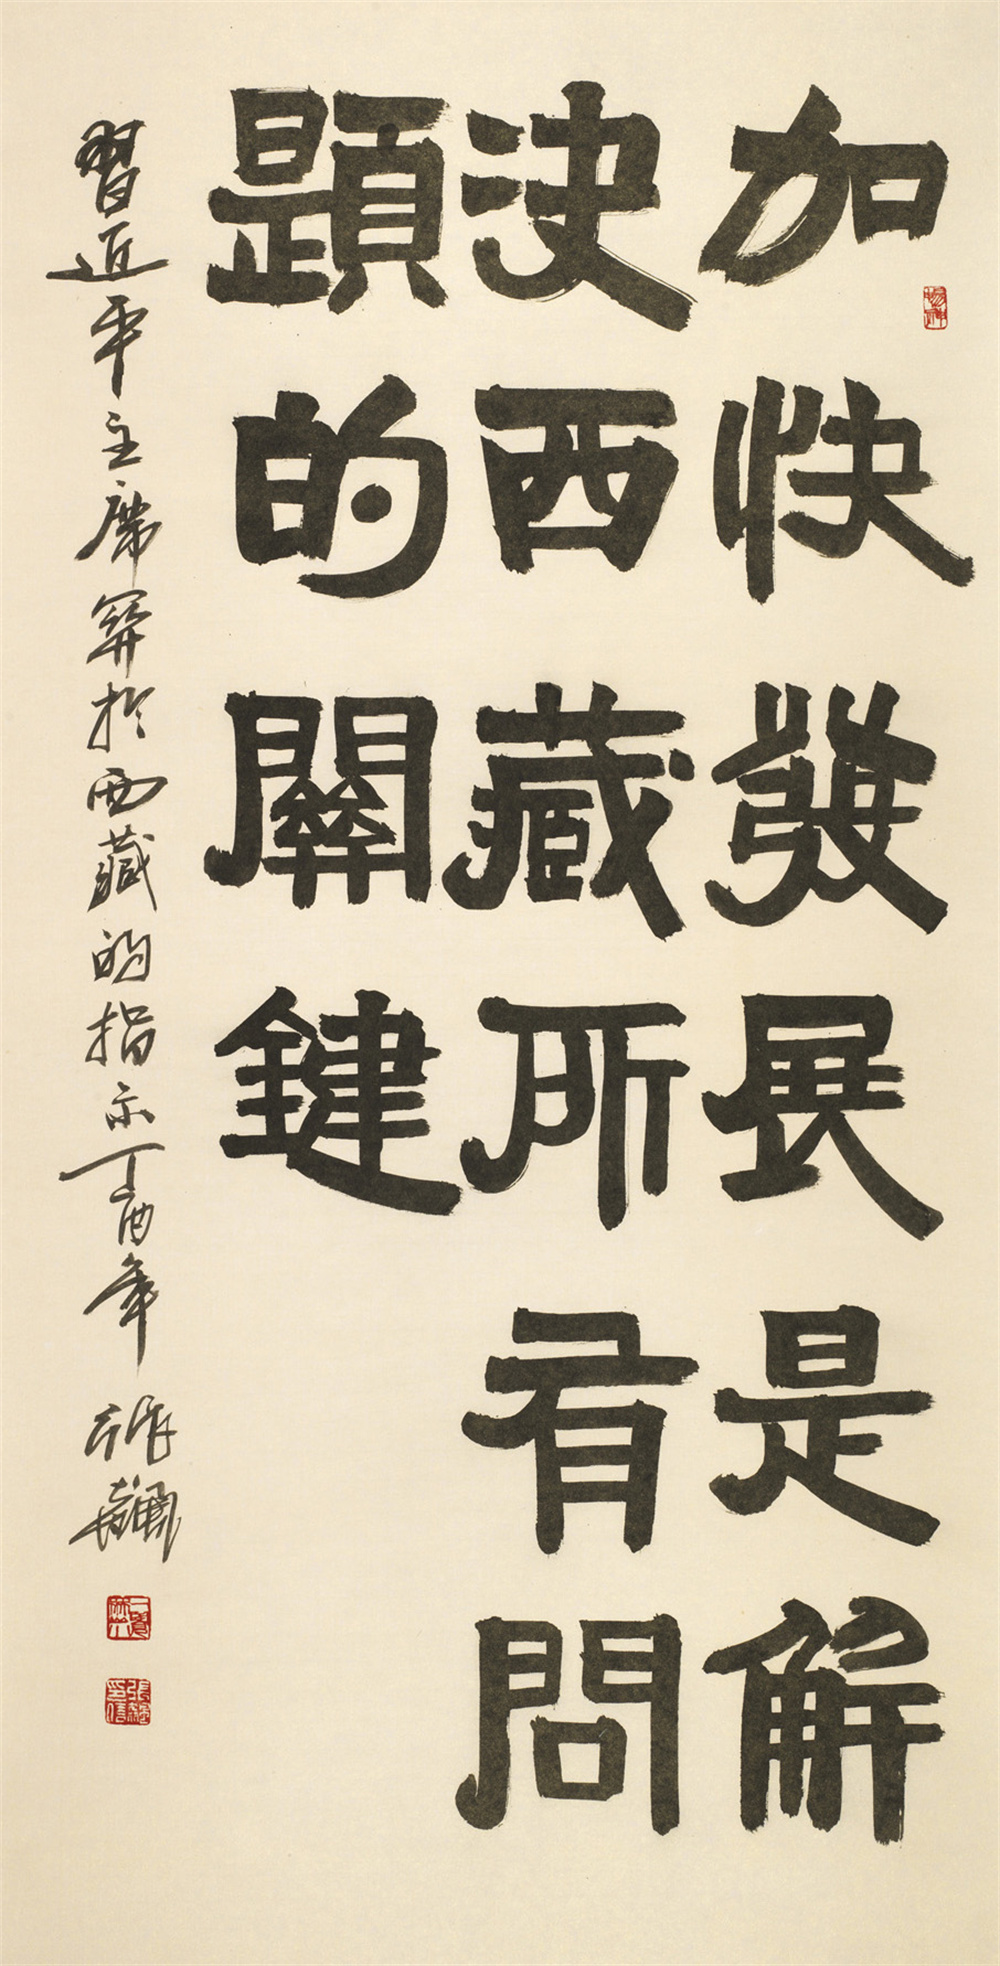 加快發展是解
決西藏所有問
題的關鍵
習近平主席關於西藏的指示丁酉年